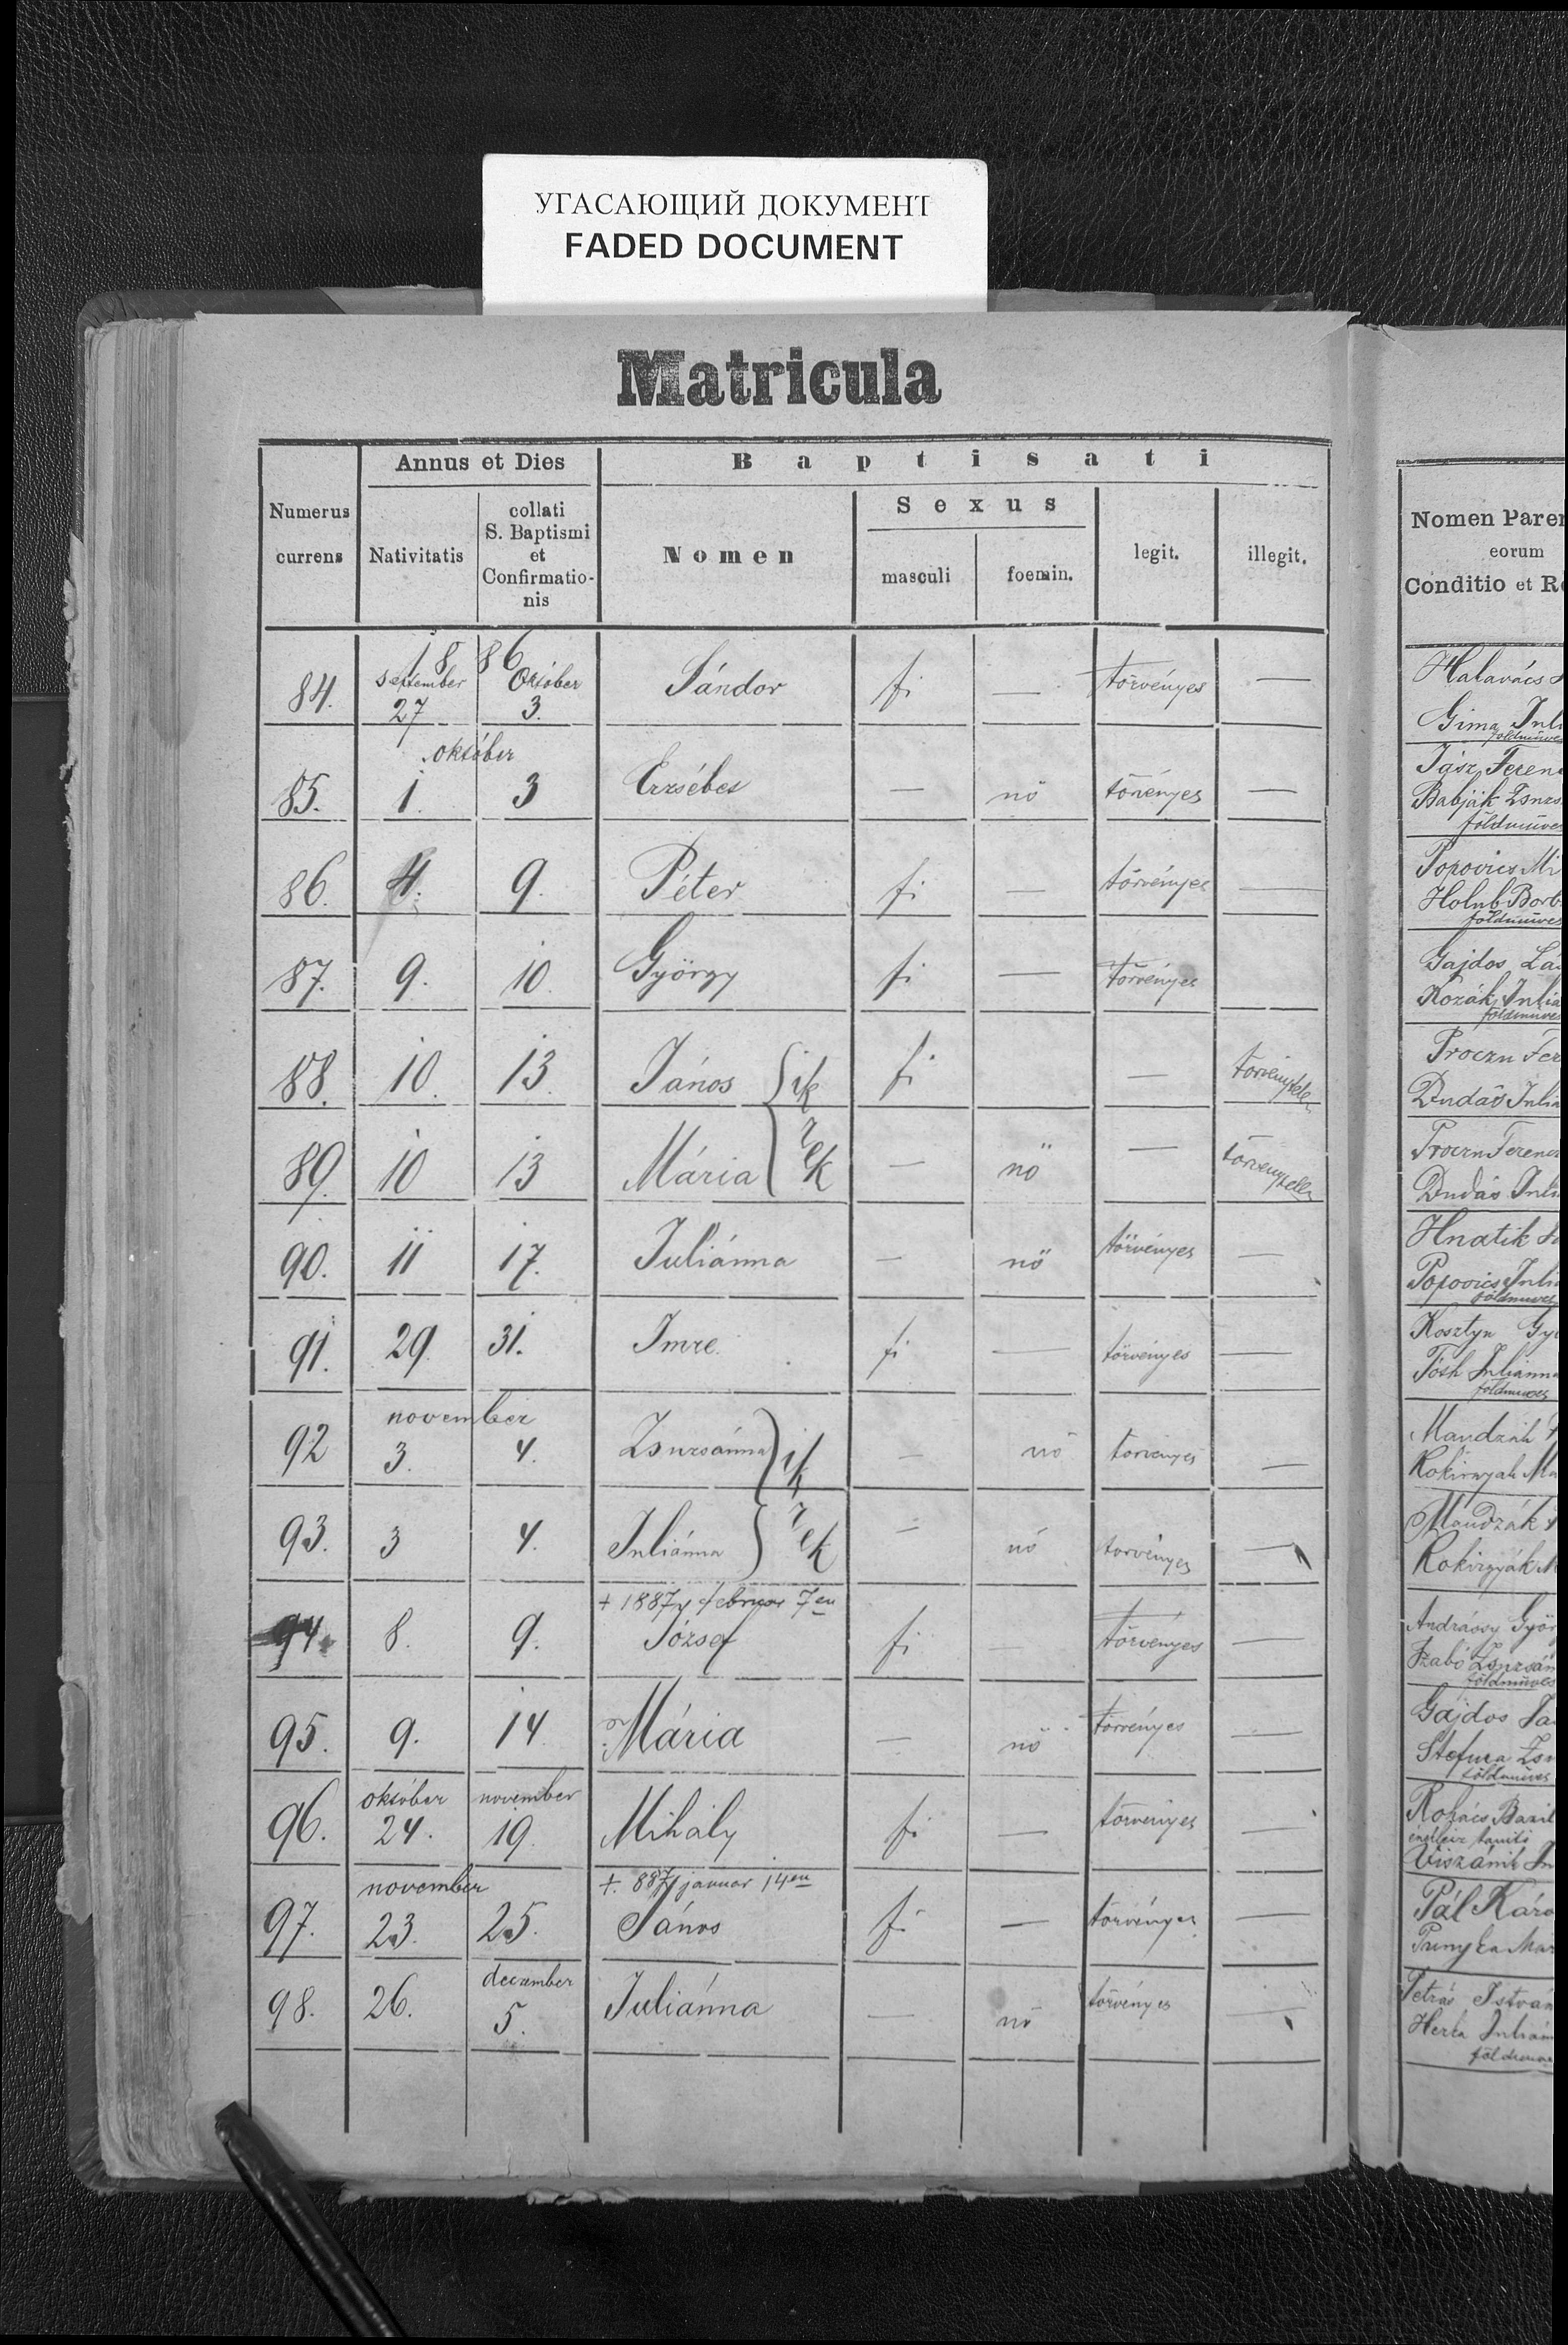 УГАСАЮЩИЙ ДОКУМЕНТ
FADED DOCUMENT
Matricula
Numerus currens
Annus et Dies
Nativitatis
collati S. Baptismi et Confirmatio-nis
Baptisati
Nomen
Sexus
masculi
foemin.
legit.
illegit.
Nomen Paren
eorum
Conditio et R
1886
84. september 27 Október 3. Sándor fi — törvényes —
október
85. 1. 3 Erzsébet — nö törvényes —
86. 4. 9. Péter fi — törvényes —
87. 9. 10. György fi — törvényes
88. 10. 13. János ik fi — törvénytelen
89. 10 13 Mária rek — nö — törvénytelen
90. 11 17. Juliánna — nö törvényes —
91. 29. 31. Imre. fi — törvényes —
november
92 3. 4. Zsuzsánna ik — nö törvényes —
93. 3 4. Juliánna rek — nö törvényes —
+ 1887 februar 7en
94. 8. 9. József fi — törvényes —
95. 9. 14 Mária — nö törvényes —
96. október 24. november 19. Mihály fi — törvényes —
november + 887 januar 14en
97. 23. 25. János fi — törvényes —
98. 26. december 5. Juliánna — nö törvényes —
Halavács
Gima Juli
földmüves
Jász Feren
Babják Zsuzs
földmüves
Popovics Mi
Holub Borb
földmüves
Gajdos Lá
Kozák Julia
földmüves
Proczu Fer
Dudás Julia
Proczu Ferencz
Dudás Juli
Hnatik
Popovics Juli
földmüves
Kosztyu Gy
Tóth Juliánna
földmüves
Mandzák
Mandzák
Andrássy Györ
Szabó Zsuzsán
földmüves
Gajdos Já
Stefura Zsu
földmüves
Kovács Bazil
Juli
Pál Káro
Mar
Petrás István
Herka Julián
földmüves